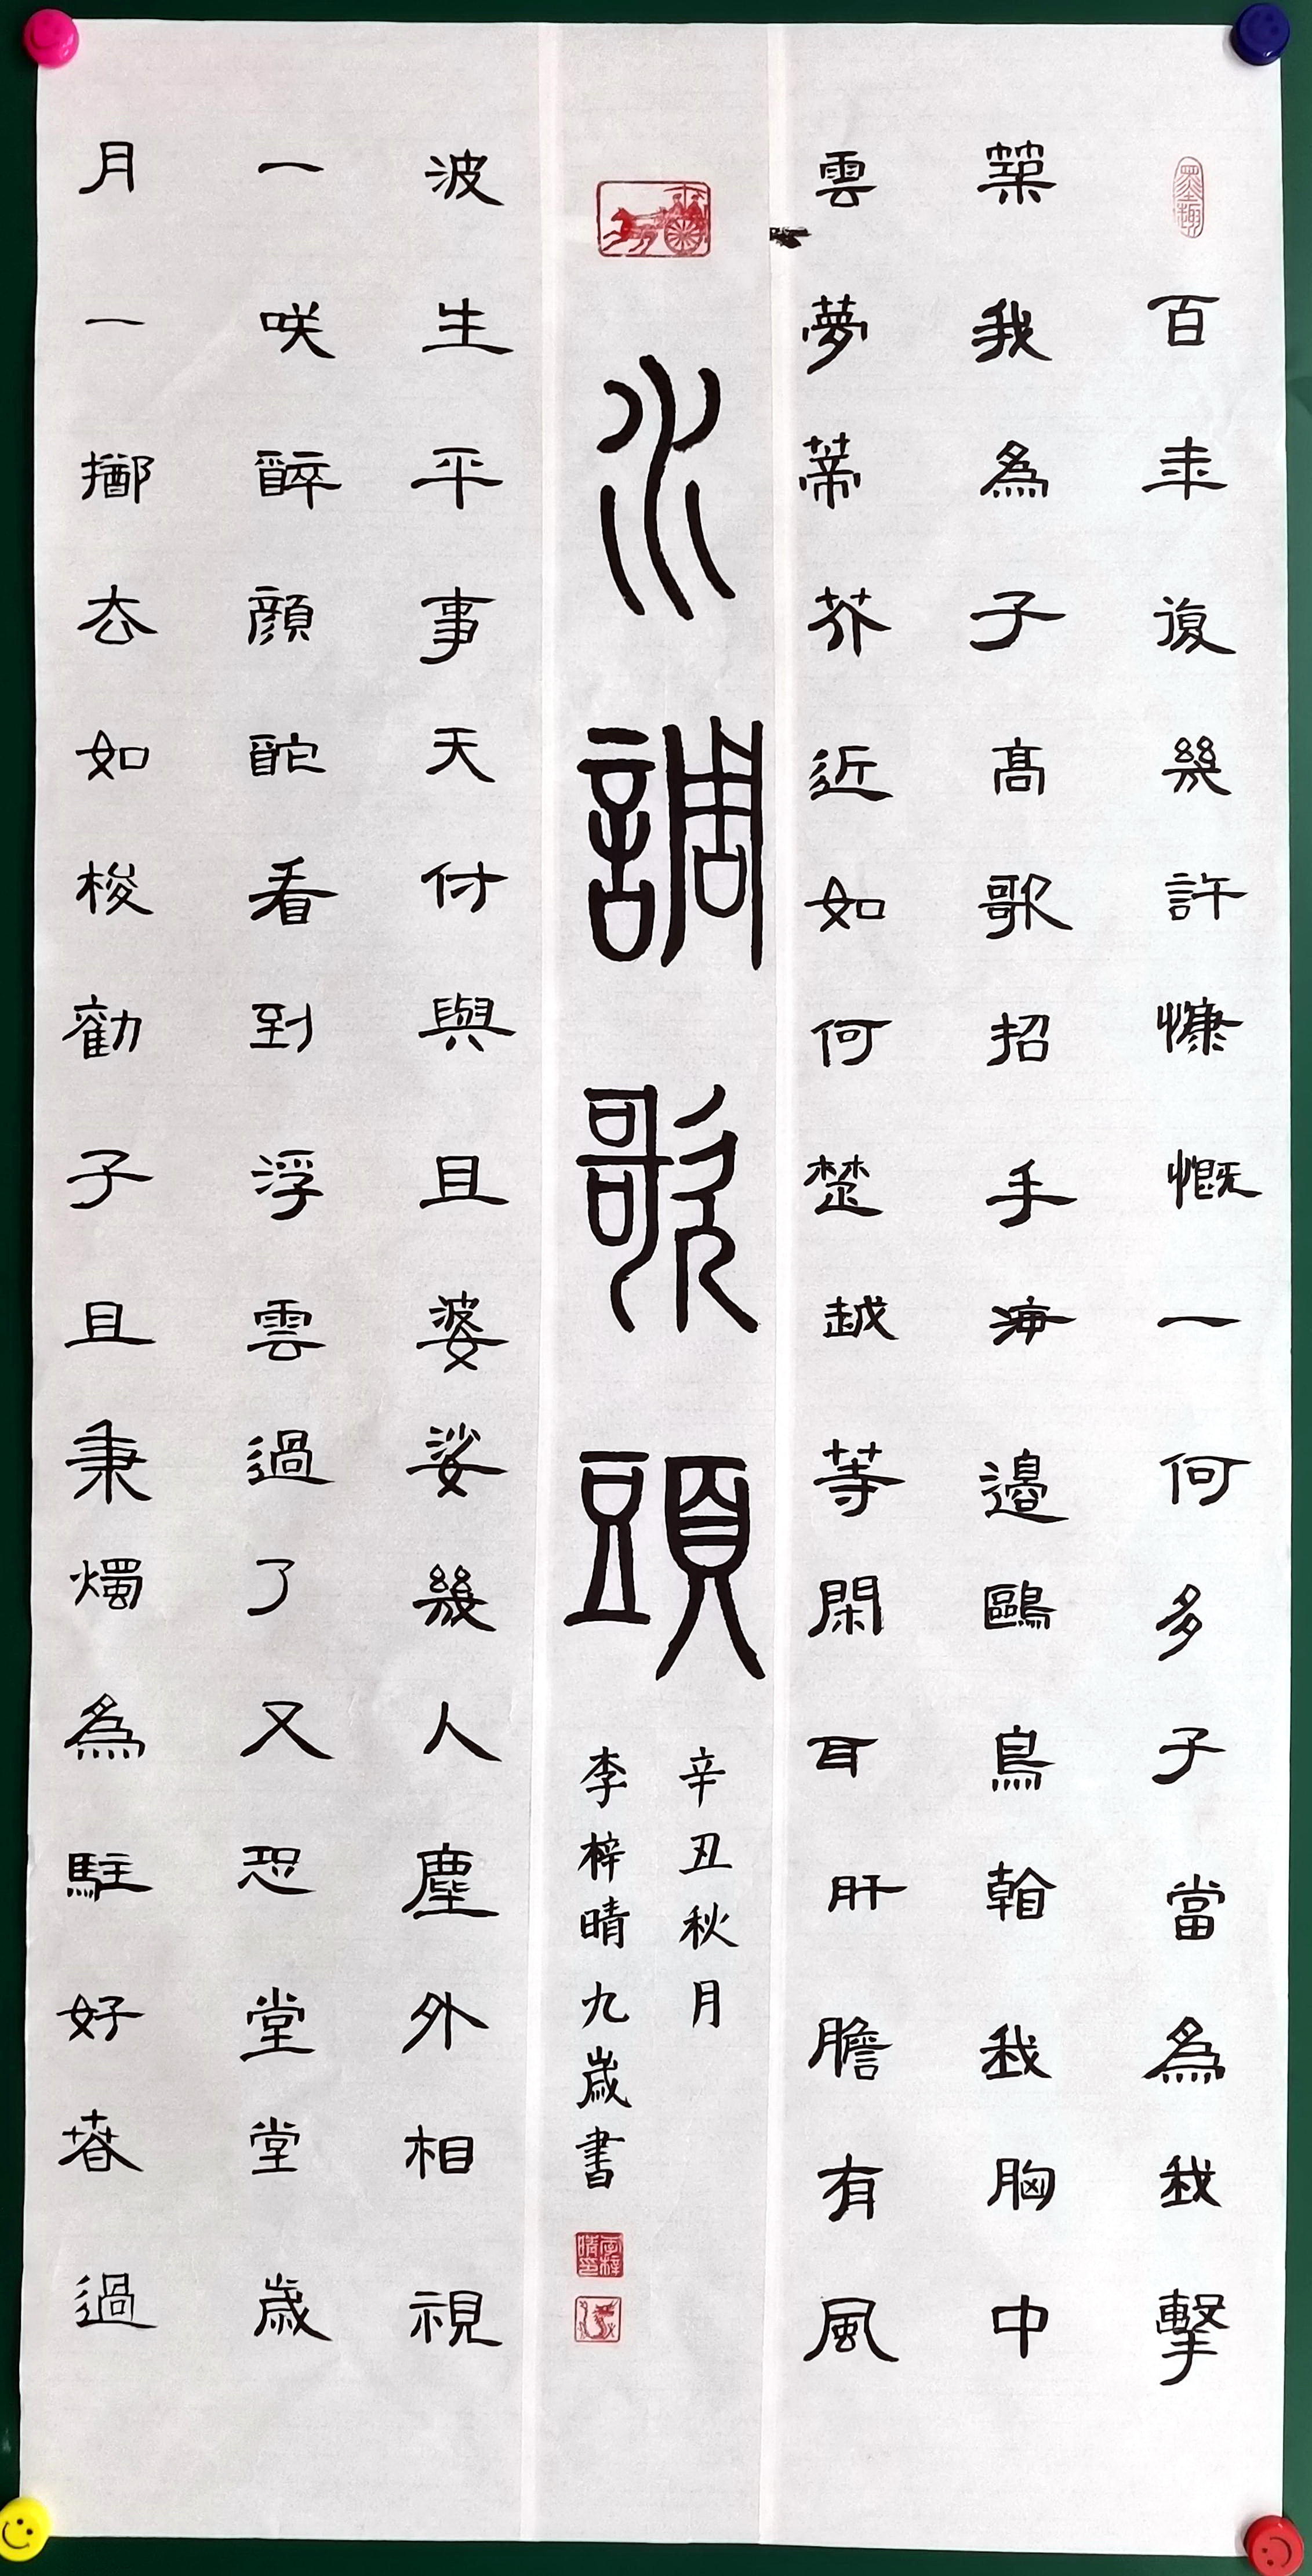 墨趣
百年復幾許慷慨一何多子當為我擊
築我為子高歌招手海邊鷗鳥翰我胸中
雲夢蒂芥近如何楚越等閑耳肝膽有風
水調歌頭
辛丑秋月
李梓晴九歲書
李梓晴印
波生平事天付與且婆娑幾人塵外相視
一咲醉顏酡看到浮雲過了又恐堂堂歲
月一擲去如梭勸子且秉燭為駐好春過